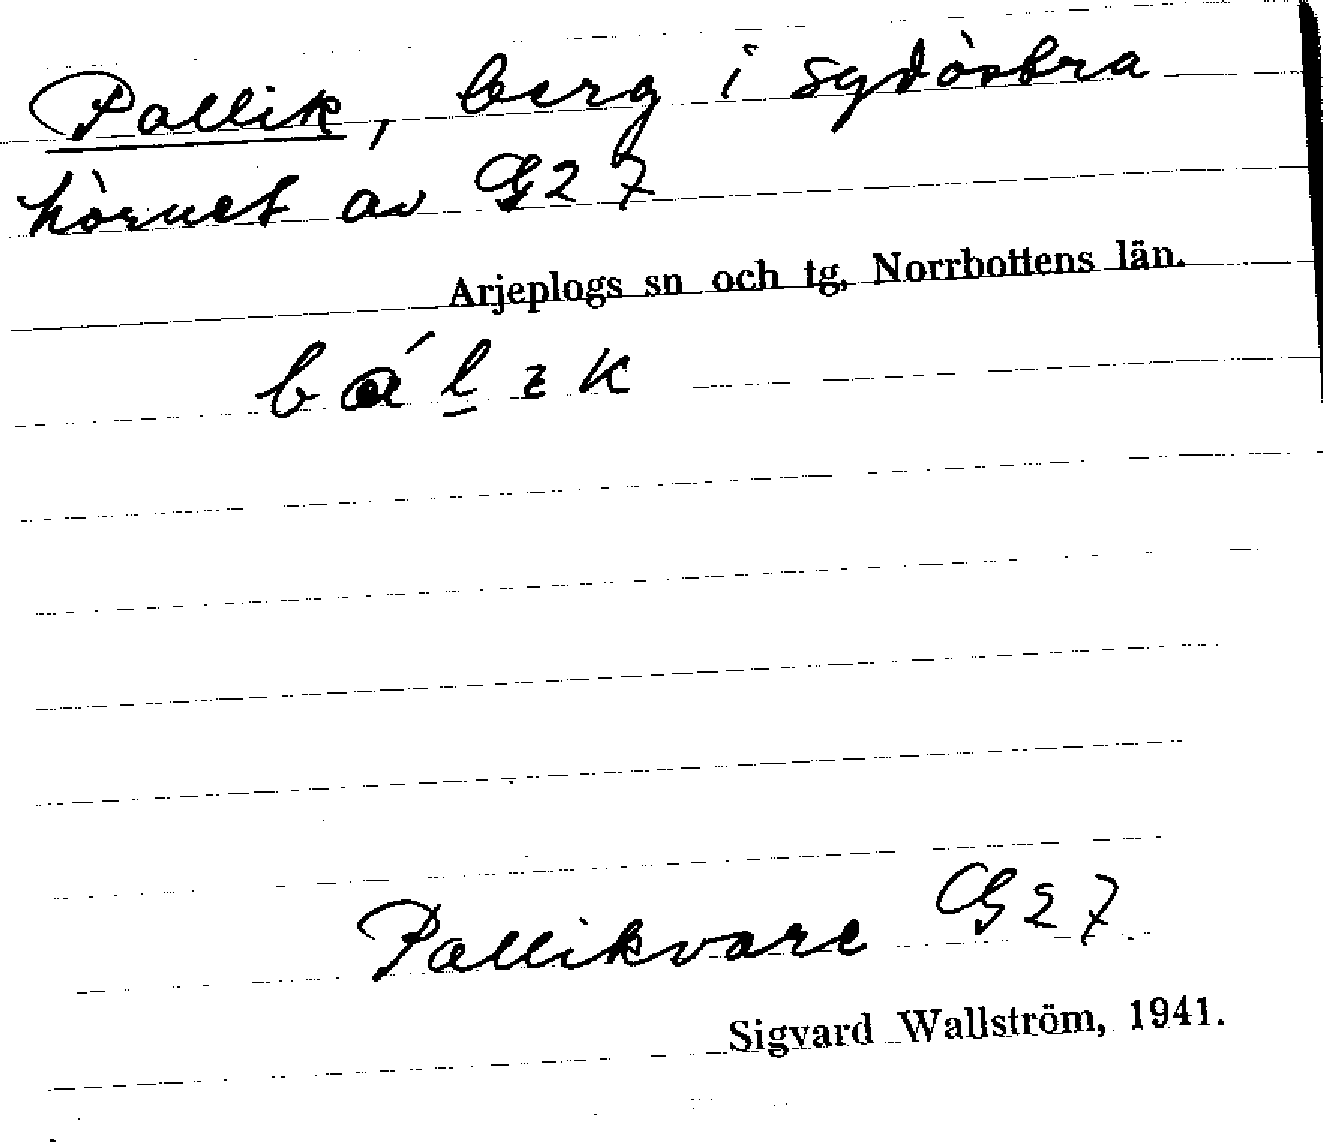 Pallik, berg i sydöstra
hörnet av G27
Arjeplogs sn och tg, Norrbottens län.
Pallikvare G27
Sigvard Wallström, 1941.